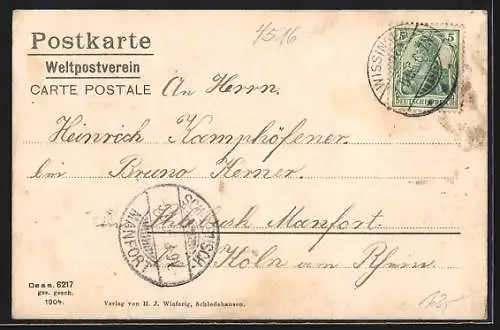 4516
Postkarte
Weltpostverein
CARTE POSTALE
5 5
DEUTSCHES REICH
WISSING
An Herrn.
Heinrich Kamphöfener.
bei Bruno Kerner.
in Manfort.
Köln am Rhein
MANFORT
Dess. 6217
ges. gesch.
1904.
Verlag von H. J. Winferig, Schledehausen.
12,-